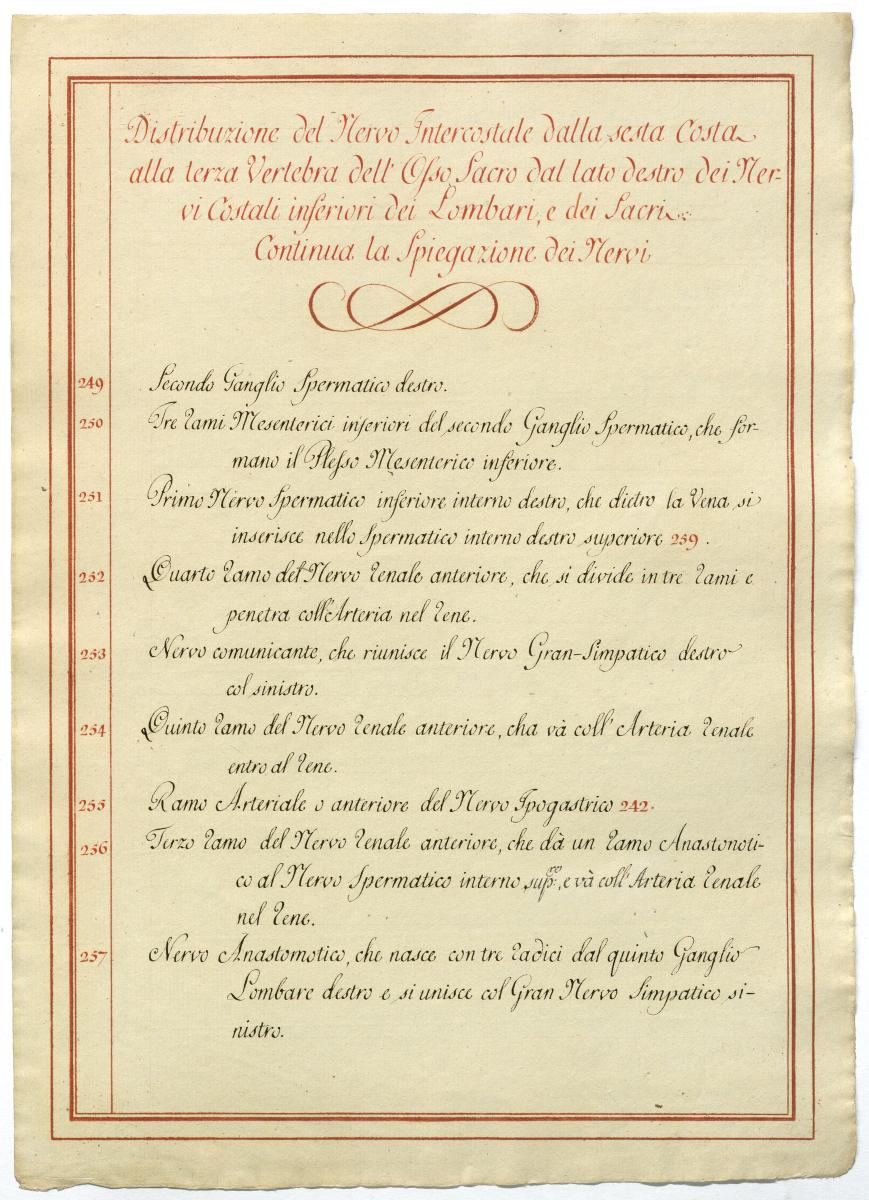 Distribuzione del Nervo Intercostale dalla sesta Costa
alla terza Vertebra dell' Osso Sacro dal lato destro dei Ner-
vi Costali inferiori dei Lombari, e dei Sacri.
Continua la Spiegazione dei Nervi
249 Secondo Ganglio Spermatico destro.
250 Tre rami Mesenterici inferiori del secondo Ganglio Spermatico, che for-
mano il Plesso Mesenterico inferiore.
251 Primo Nervo Spermatico inferiore interno destro, che dietro la Vena si
inserisce nello Spermatico interno destro superiore 259.
252 Quarto ramo del Nervo renale anteriore, che si divide in tre rami e
penetra coll'Arteria nel rene.
253 Nervo comunicante, che riunisce il Nervo Gran-Simpatico destro
col sinistro.
254 Quinto ramo del Nervo renale anteriore, cha và coll' Arteria renale
entro al rene.
255 Ramo Arteriale o anteriore del Nervo Ipogastrico 242.
256 Terzo ramo del Nervo renale anteriore, che dà un ramo Anastonoti-
co al Nervo Spermatico interno sup.re, e và coll' Arteria renale
nel rene.
257 Nervo Anastomotico, che nasce con tre radici dal quinto Ganglio
Lombare destro e si unisce col Gran Nervo Simpatico si-
nistro.